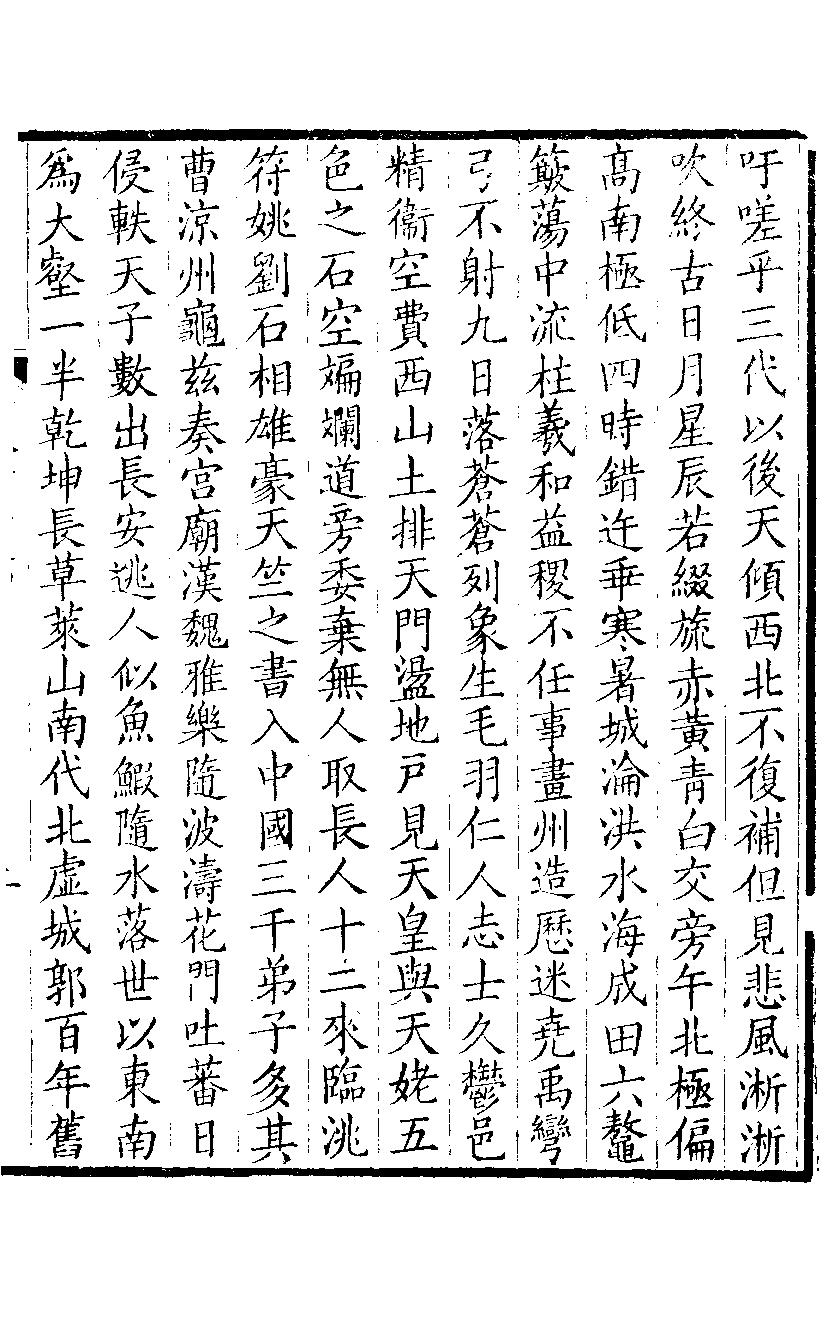 吁嗟乎三代以後天傾西北不復補但見悲風淅淅
吹終古日月星辰若綴旒赤黃青白交旁午北極偏
高南極低四時錯迕乖寒暑城淪洪水海成田六鼇
簸蕩中流柱羲和益稷不任事畫州造歷迷堯禹彎
弓不射九日落蒼蒼列象生毛羽仁人志士久鬱邑
精衞空費西山土排天門盪地戸見天皇與天姥五
色之石空斒斕道旁委棄無人取長人十二來臨洮
符姚劉石相雄豪天竺之書入中國三千弟子多其
曹涼州龜兹奏宮廟漢魏雅樂隨波濤花門吐蕃日
侵軼天子數出長安逃人似魚鰕隨水落世以東南
爲大壑一半乾坤長草萊山南代北虛城郭百年舊